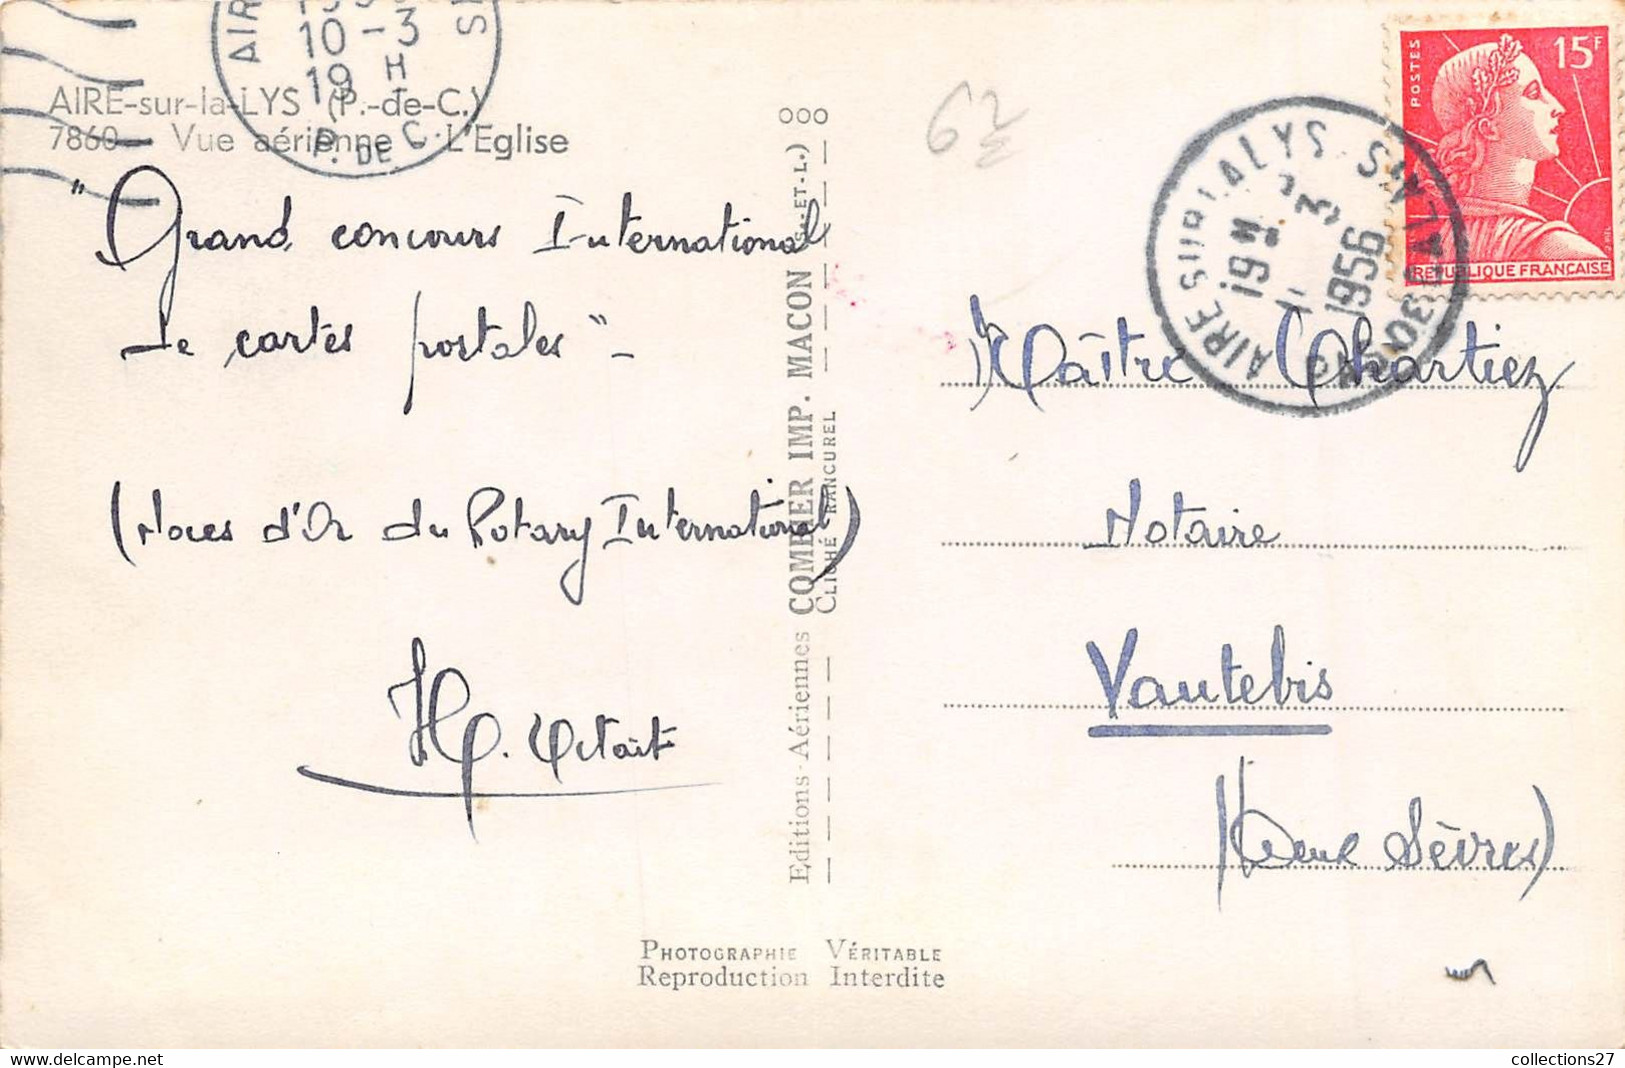 AIRE-sur-la-LYS (P.-de-C.)
7860 - Vue aérienne - L'Eglise
10 - 3
19 H
P. DE C.
"Grand concours International
de cartes postales" -
(Noces d'Or du Rotary International)
Editions Aériennes COMBIER IMP. MACON (S.-ET-L.)
CLICHÉ RANCUREL
PHOTOGRAPHIE VÉRITABLE
Reproduction Interdite
62
POSTES
15F
REPUBLIQUE FRANÇAISE
AIRE SUR LA LYS
19 H
3
1956
Maître Chartiez
Notaire
Vautebis
(Deux Sèvres)
collections27